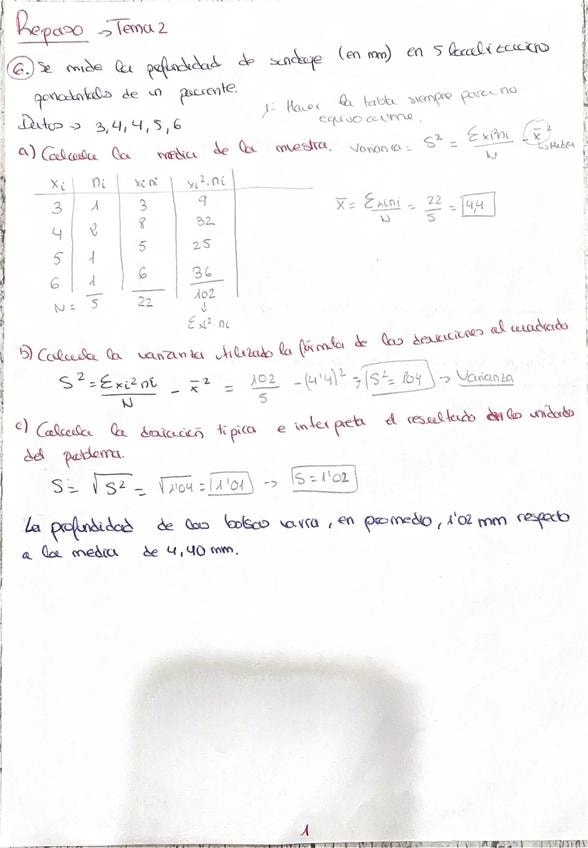 Repaso → Tema 2
6. Se mide la profundidad de sondaje (en mm) en 5 localizaciones
periodontales de un paciente.
1- Hacer la tabla siempre para no
equivocarme.
Datos → 3, 4, 4, 5, 6
a) Calcula la media de la muestra. Varianza = S² = Σxi²ni / N - x̄² → Media
xi | ni | xi ni | xi²·ni
3 | 1 | 3 | 9
4 | 2 | 8 | 32
5 | 1 | 5 | 25
6 | 1 | 6 | 36
N = 5 | 22 | 102
↓
Σxi² ni
x̄ = Σxini / N = 22 / 5 = 4,4
b) Calcula la varianza utilizado la fórmula de las desviaciones al cuadrado
S² = Σxi² ni / N - x̄² = 102 / 5 - (4'4)² = S² = 1'04 → Varianza
c) Calcula la desviación típica e interpreta el resultado en las unidades
del problema.
S = √S² = √1'04 = 1'01 → S = 1'02
La profundidad de las bolsas varía, en promedio, 1'02 mm respecto
a la media de 4,40 mm.
1